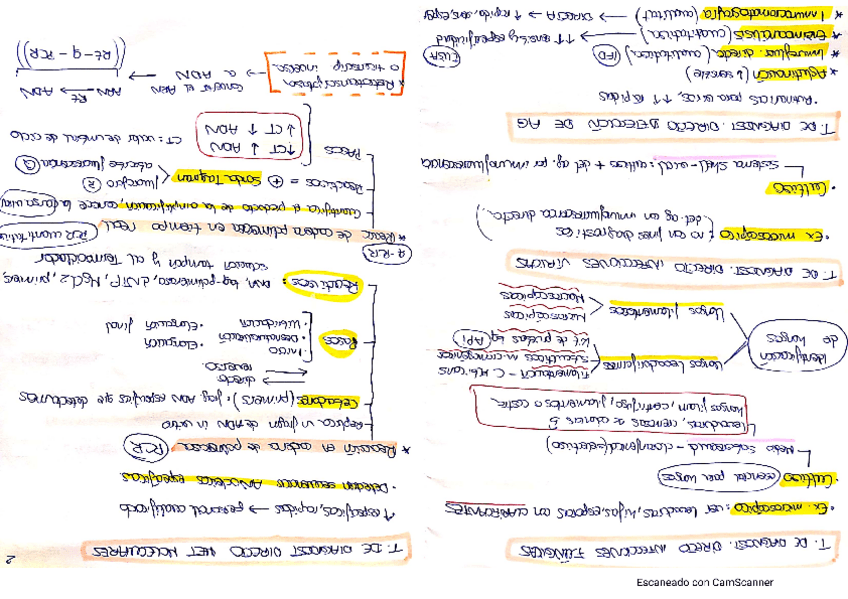 T. DE DIAGNOST. DIRECTO INFECCIONES FÚNGICAS
* Ex. microscópico: ver: levaduras, hifas, esporas con CLARIFICANTES
· Cultivo (esencial para hongos)
Medio sabouraud - cloranfenicol (selectivo)
Levaduras, centrífugo o cesta.
Identificación de hongos
Hongos levaduriformes
- C. Albicans
kit de pruebas bq (API)
Hongos filamentosos
Microscópicas
Macroscópicas
T. DE DIAGNOST. DIRECTO INFECCIONES VÍRICAS
* Ex. microscópico: no con fines diagnósticos
det. ag con inmunofluorescencia directa
· Cultivo
Sistema Shell-vial: cultivos + det ag. por inmunofluorescencia
T. DE DIAGNOST. DIRECTO DETECCIÓN DE AG
· Automatizas para virus, ↑↑ rápidas
* Aglutinación (↓ sensible)
* Inmunofluor. directa (cualitativa) (IFD)
* Enzimoanálisis (cuantitativa) → ↑↑ sensib. y especificidad (ELISA)
* Inmunocromatografía (cualitat) → DIRECTA → ↑ rápido, sens, espec
T. DE DIAGNOST DIRECTO MET MOLECULARES
2
↑ específicas, rápidas → personal cualificado
· Detectan secuencias ANucleicos específicas
* Reacción en cadena de polimerasa (PCR)
Replica un fragm de ADN in vitro
Cebadores (primers): frag ADN específicos que detectamos
directo
reverso
Pasos
· Inicio
· Desnaturalización
· Hibridación
· Elongación
· Elongación final
Reactivos: DNA, taq-polimerasa, dNTP, MgCl2, primers,
solución tampón y al Termociclador
(q-PCR)
* Reac. de cadena polimerasa en tiempo real (PCR cuantitativa)
Cuantifica el producto de la amplificación, conoce la carga viral
Reactivos = + Sonda Taqman
fluoróforo (R)
absorbe fluorescencia (Q)
PASOS
↑CT ↓ ADN
↓CT ↑ ADN
CT: valor de umbral de ciclo
* Retrotranscriptasa o transcrip inversa → Convierte el ARN a ADN
ARN → ADN
RT
((RT - q - PCR))
Escaneado con CamScanner